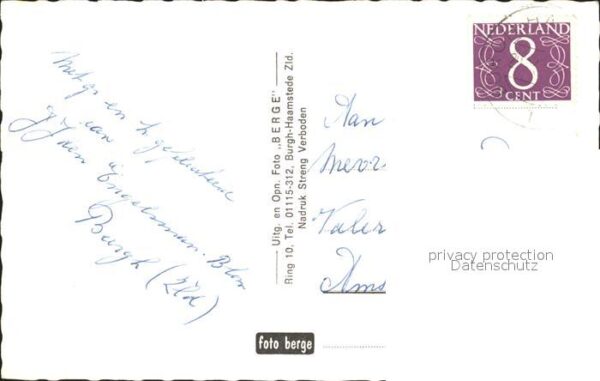 Met gr en
van
Engelsman. Blom
Burgh (Zld)
Uitg. en Opn. Foto „BERGE”
Ring 10, Tel. 01115-312, Burgh-Haamstede Zld.
Nadruk Streng Verboden
foto berge
NEDERLAND
8
CENT
Aan
Mevr
Valer
Ams
privacy protection
Datenschutz